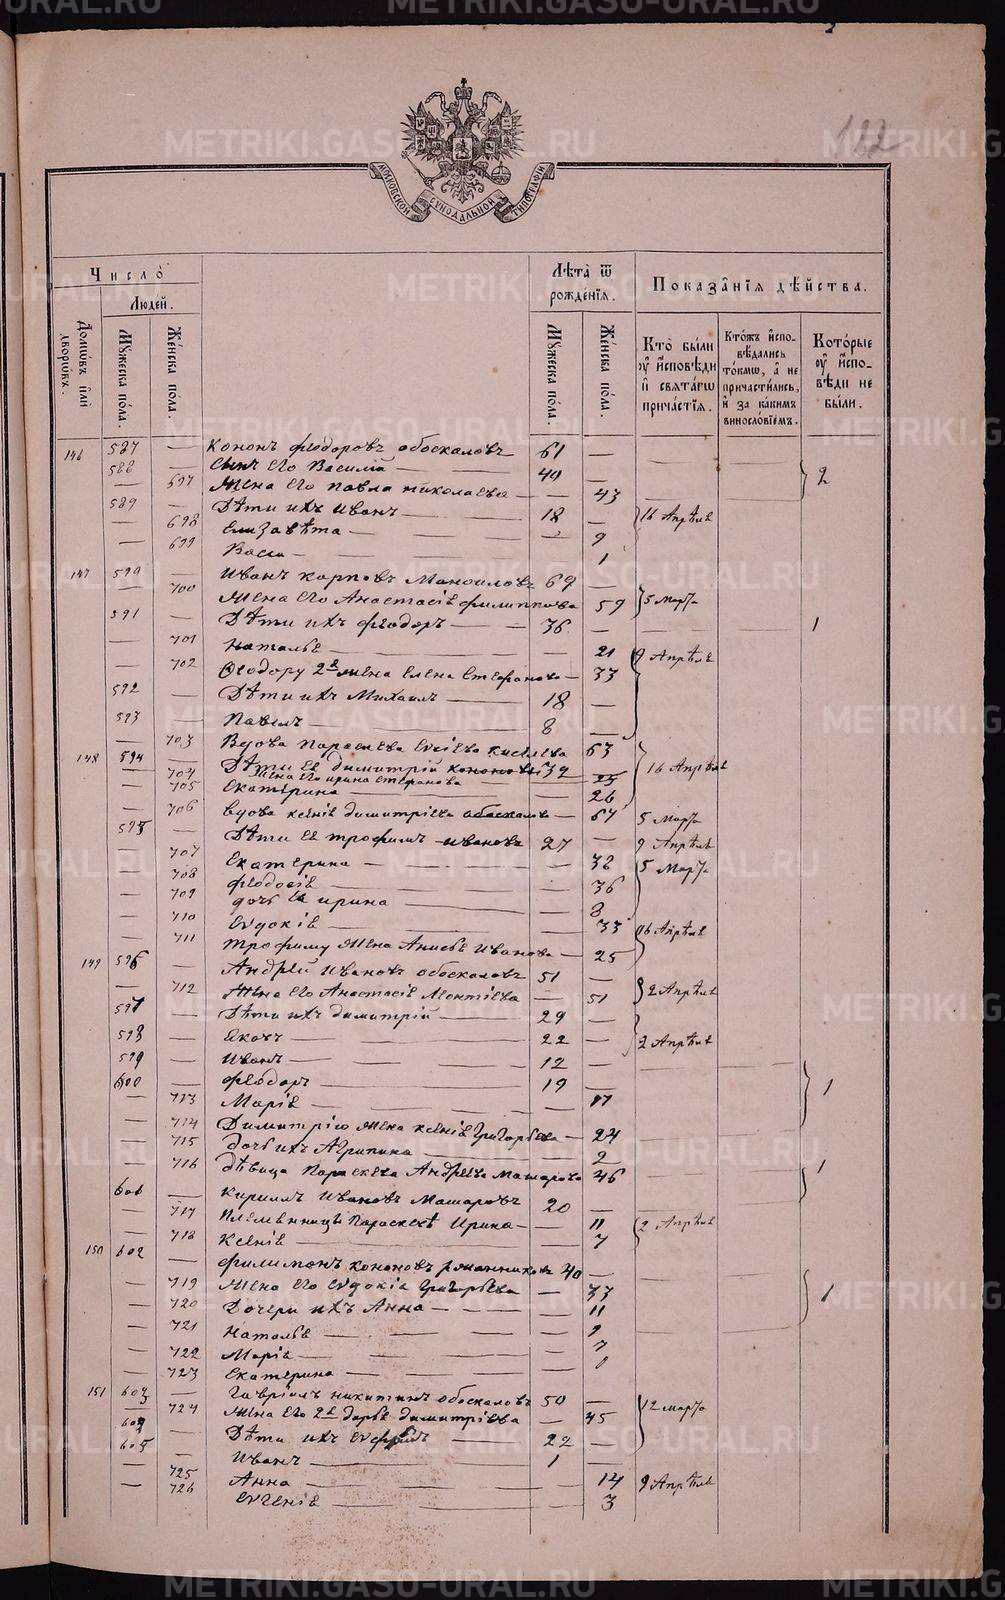 METRIKI.GASO-URAL.RU
122
МОСКОВСКОЙ СѴНОДАЛЬНОЙ ТИПОГРАФІИ
Число̀
Люде́й.
Домѡ́въ и҆лѝ дворѡ́въ.
Мꙋ́жеска по́ла.
Же́нска по́ла.
Лѣ́та ѿ рожде́нїѧ.
Мꙋ́жеска по́ла.
Же́нска по́ла.
Показа̑нїѧ дѣ́йства.
Кто̀ бы́ли ᲂу҆ и҆́сповѣди и҆ свѧта́гѡ прича́стїѧ.
Кто́жъ и҆спо- вѣ́дались то́кмѡ, а҆ не причасти́лись, и҆ за каки́мъ винословїемъ.
Кото́рые ᲂу҆ и҆спо- вѣди не бы́ли.
146 587 — Кононъ Феодоровъ Обоскаловъ 61 —
588 — Сынъ его Василій — 40 2
— 697 Жена его Павла Николаева — — 43
589 — Дѣти ихъ Иванъ — 18 — 16 Апрѣля
— 698 Елизавѣта — — 9
— 699 Васса — 1
147 590 — Иванъ Карповъ Маноиловъ 69 —
— 700 Жена его Анастасія Филиппова 59 5 Марта
591 — Дѣти ихъ Феодоръ — — 36 — 1
— 701 Наталья — — 21 9 Апрѣля
— 702 Феодору 2я жена Елена Стефанова — 33
592 — Дѣти ихъ Михаилъ — 18 —
593 — Павелъ — 8 —
— 703 Вдова Параскева Киселева 63
148 594 — Дѣти ея Димитрій Кононовъ 39 16 Апрѣля
— 704 Жена его Ирина Стефанова — 25
— 705 Екатерина — — 26
— 706 Вдова Ксенія Димитріева Обоскалова — 67 5 Марта
595 — Дѣти ея Трофимъ Ивановъ 27 — 9 Апрѣля
— 707 Екатерина — — 38 5 Марта
— 708 Феодосія — — 36
— 709 дочь ея Ирина — — 8
— 710 Евдокія — — 33 16 Апрѣля
— 711 Трофиму жена Анисья Иванова — 25
149 596 — Андрей Ивановъ Обоскаловъ 51 —
— 712 Жена его Анастасія Леонтіева — 51 2 Апрѣля
597 — Дѣти ихъ Димитрій — 29 —
598 — Яковъ — 22 — 2 Апрѣля
599 — Иванъ — 12 —
600 — Феодоръ — 19 — 1
— 713 Марія — — 17
— 714 Димитрію жена Ксенія Григорьева — 24
— 715 дочь ихъ Агрипина — 2
— 716 дѣвица Параскева Андреева Машарова 46 1
601 — Кириллъ Ивановъ Машаровъ 20 —
— 717 Племянницы Параскевѣ Ирина — — 11 2 Апрѣля
— 718 Ксенія — — 7
150 602 — Филимонъ Кононовъ 40 —
— 719 Жена его Евдокія Григорьева — 37 1
— 720 Дочери ихъ Анна — — 11
— 721 Наталья — — 9
— 722 Марія — — 7
— 723 Екатерина — —
151 603 — Гавріилъ Никитинъ Обоскаловъ 50 —
— 724 Жена его 2я Дарья Димитріева — 45 12 марта
604 — Дѣти ихъ — 22 —
605 — Иванъ — 1 —
— 725 Анна — — 14 9 Апрѣля
— 726 Евгенія — — 3